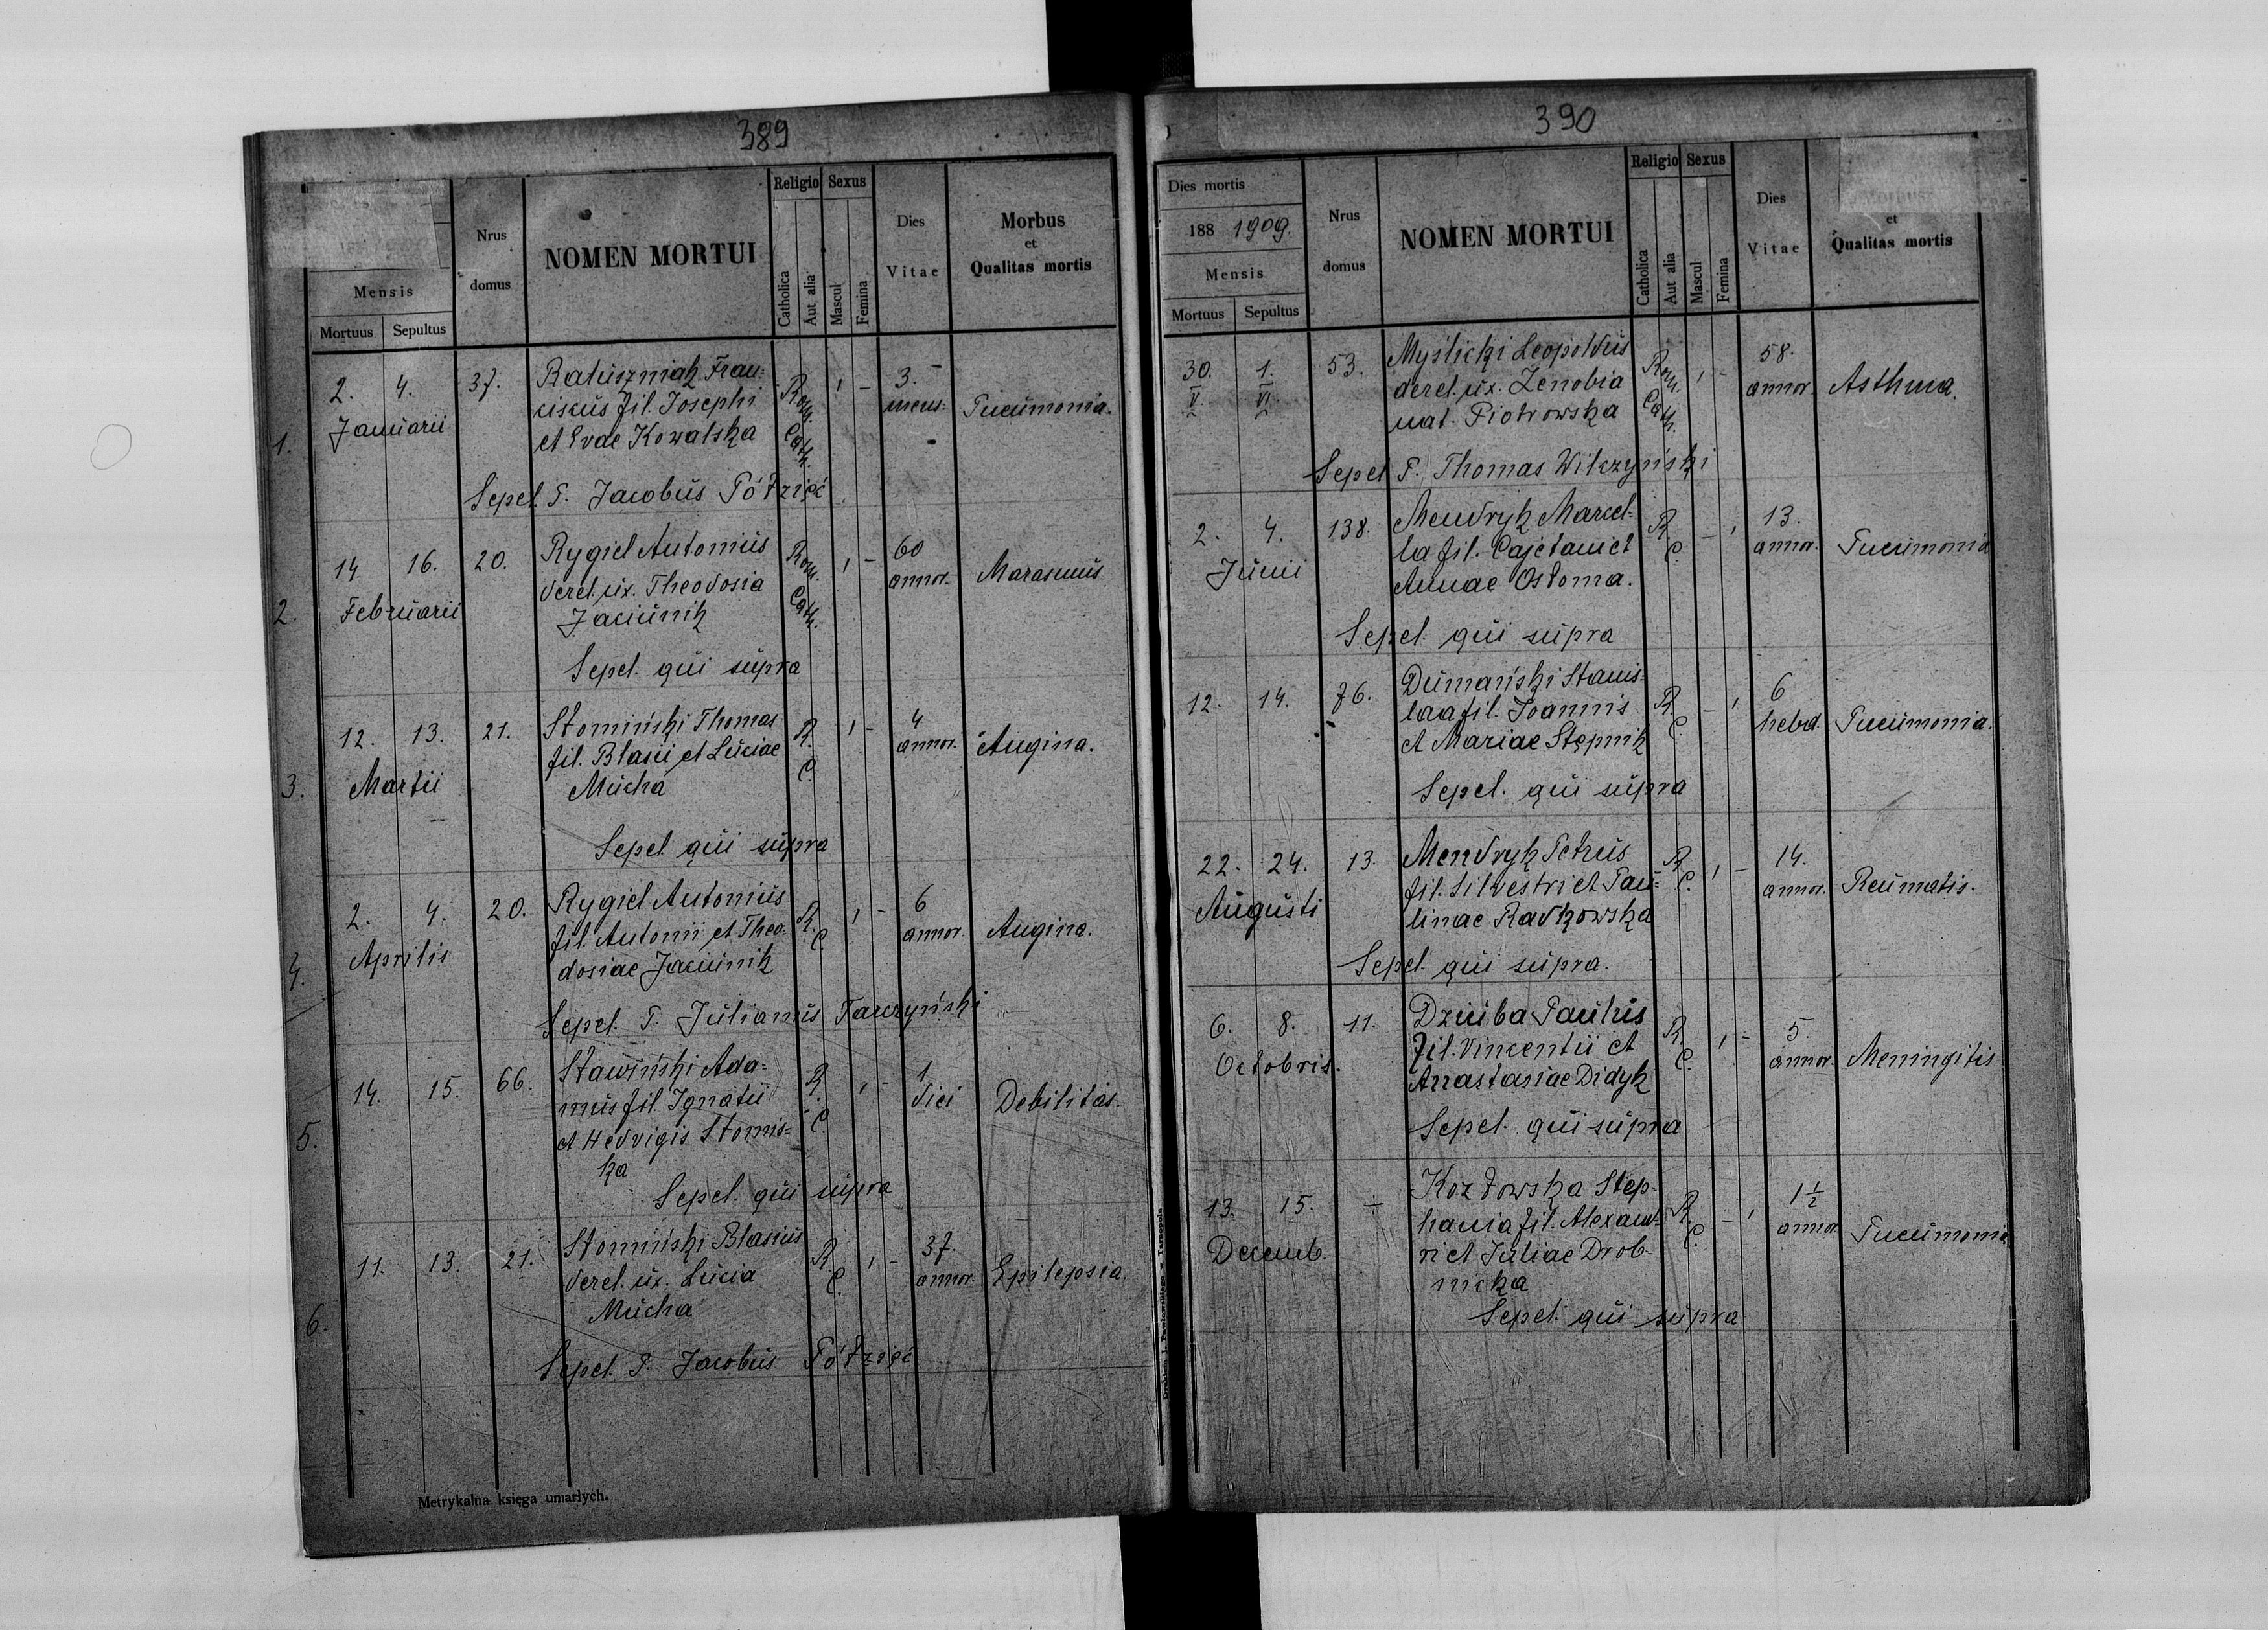 389
Religio Sexus
Nrus domus
NOMEN MORTUI
Catholica
Aut alia
Mascul
Femina
Dies Vitae
Morbus et Qualitas mortis
Mensis
Mortuus Sepultus
1. 2. 4. 37. Ratuszniak Fran- Rom. 1 - 3.
Januarii ciscus fil. Josephi Cath. mens. Pneumonia.
et Evae Kowalska
Sepel. P. Jacobus Półzięć
2. 14 16. 20. Rygiel Antonius Rom. 1 - 60
Februarii derel. ux. Theodosia Cath. annor. Marasmus
Jaciunik
Sepel. qui supra
3. 12. 13. 21. Słomiński Thomas R. 1 - 4
Martii fil. Blasii et Luciae C. annor. Angina.
Mucha
Sepel qui supra
4. 2. 4. 20. Rygiel Antonius R. 1 - 6
Aprilis fil. Antonii et Theo- C. annor. Angina.
dosiae Jaciunik
Sepel. P. Julianus Tarczyński
5. 14. 15. 66. Sławiński Ada- R. 1 - 1
mus fil. Ignatii C. diei Debilitas.
et Hedvigis Słomis-
ka
Sepel. qui supra
6. 11. 13. 21. Słomiński Blasius R. 1 - 37.
derel. ux. Lucia C. annor. Epilepsia.
Mucha
Sepel. P. Jacobus Półzięć
Metrykalna księga umarłych.
390
Dies mortis
188 1909.
Mensis
Mortuus Sepultus
Nrus domus
NOMEN MORTUI
Religio Sexus
Catholica
Aut alia
Mascul
Femina
Dies Vitae
et
Qualitas mortis
30. 1. 53. Myślicki Leopoldus Rom. 1 - 58.
V. VI. derel. ux. Zenobia Cath. annor. Asthma.
nat. Piotrowska
Sepel P. Thomas Wilczyński
2. 4. 138. Mendryk Marcel- R. - 1 13.
Junii la fil. Cajetani et C. annor. Pneumonia
Annae Ostoma.
Sepel. qui supra
12. 14. 76. Dumański Stanis- R. - 1 6
laa fil. Joannis C. hebd. Pneumonia.
et Mariae Stępnik
Sepel. qui supra
22. 24. 13. Mendryk Petrus R. 1 - 14.
Augusti fil. Silvestri et Pau- C. annor. Reumatis.
linae Radkowska
Sepel. qui supra.
6. 8. 11. Dziuba Paulus R. 1 - 5.
Octobris. fil. Vincentii et C. annor. Meningitis
Anastasiae Didyk
Sepel. qui supra
13. 15. - Kozłowska Step- R. - 1 1 1/2
Decemb. hania fil. Alexand- C. annor. Pneumonia
ri et Juliae Drob-
nicka
Sepel. qui supra